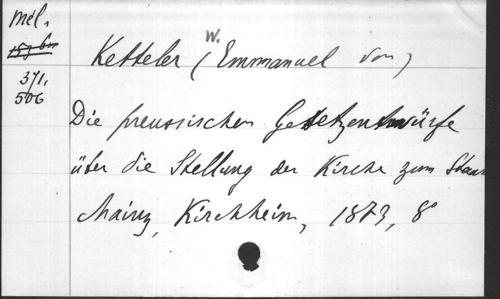 mél.
371,
506
Ketteler (W. Emmanuel von)
Die preussischen Gesetzentwürfe
über die Stellung der Kirche zum Staat
Mainz, Kirchheim, 1873, 8°